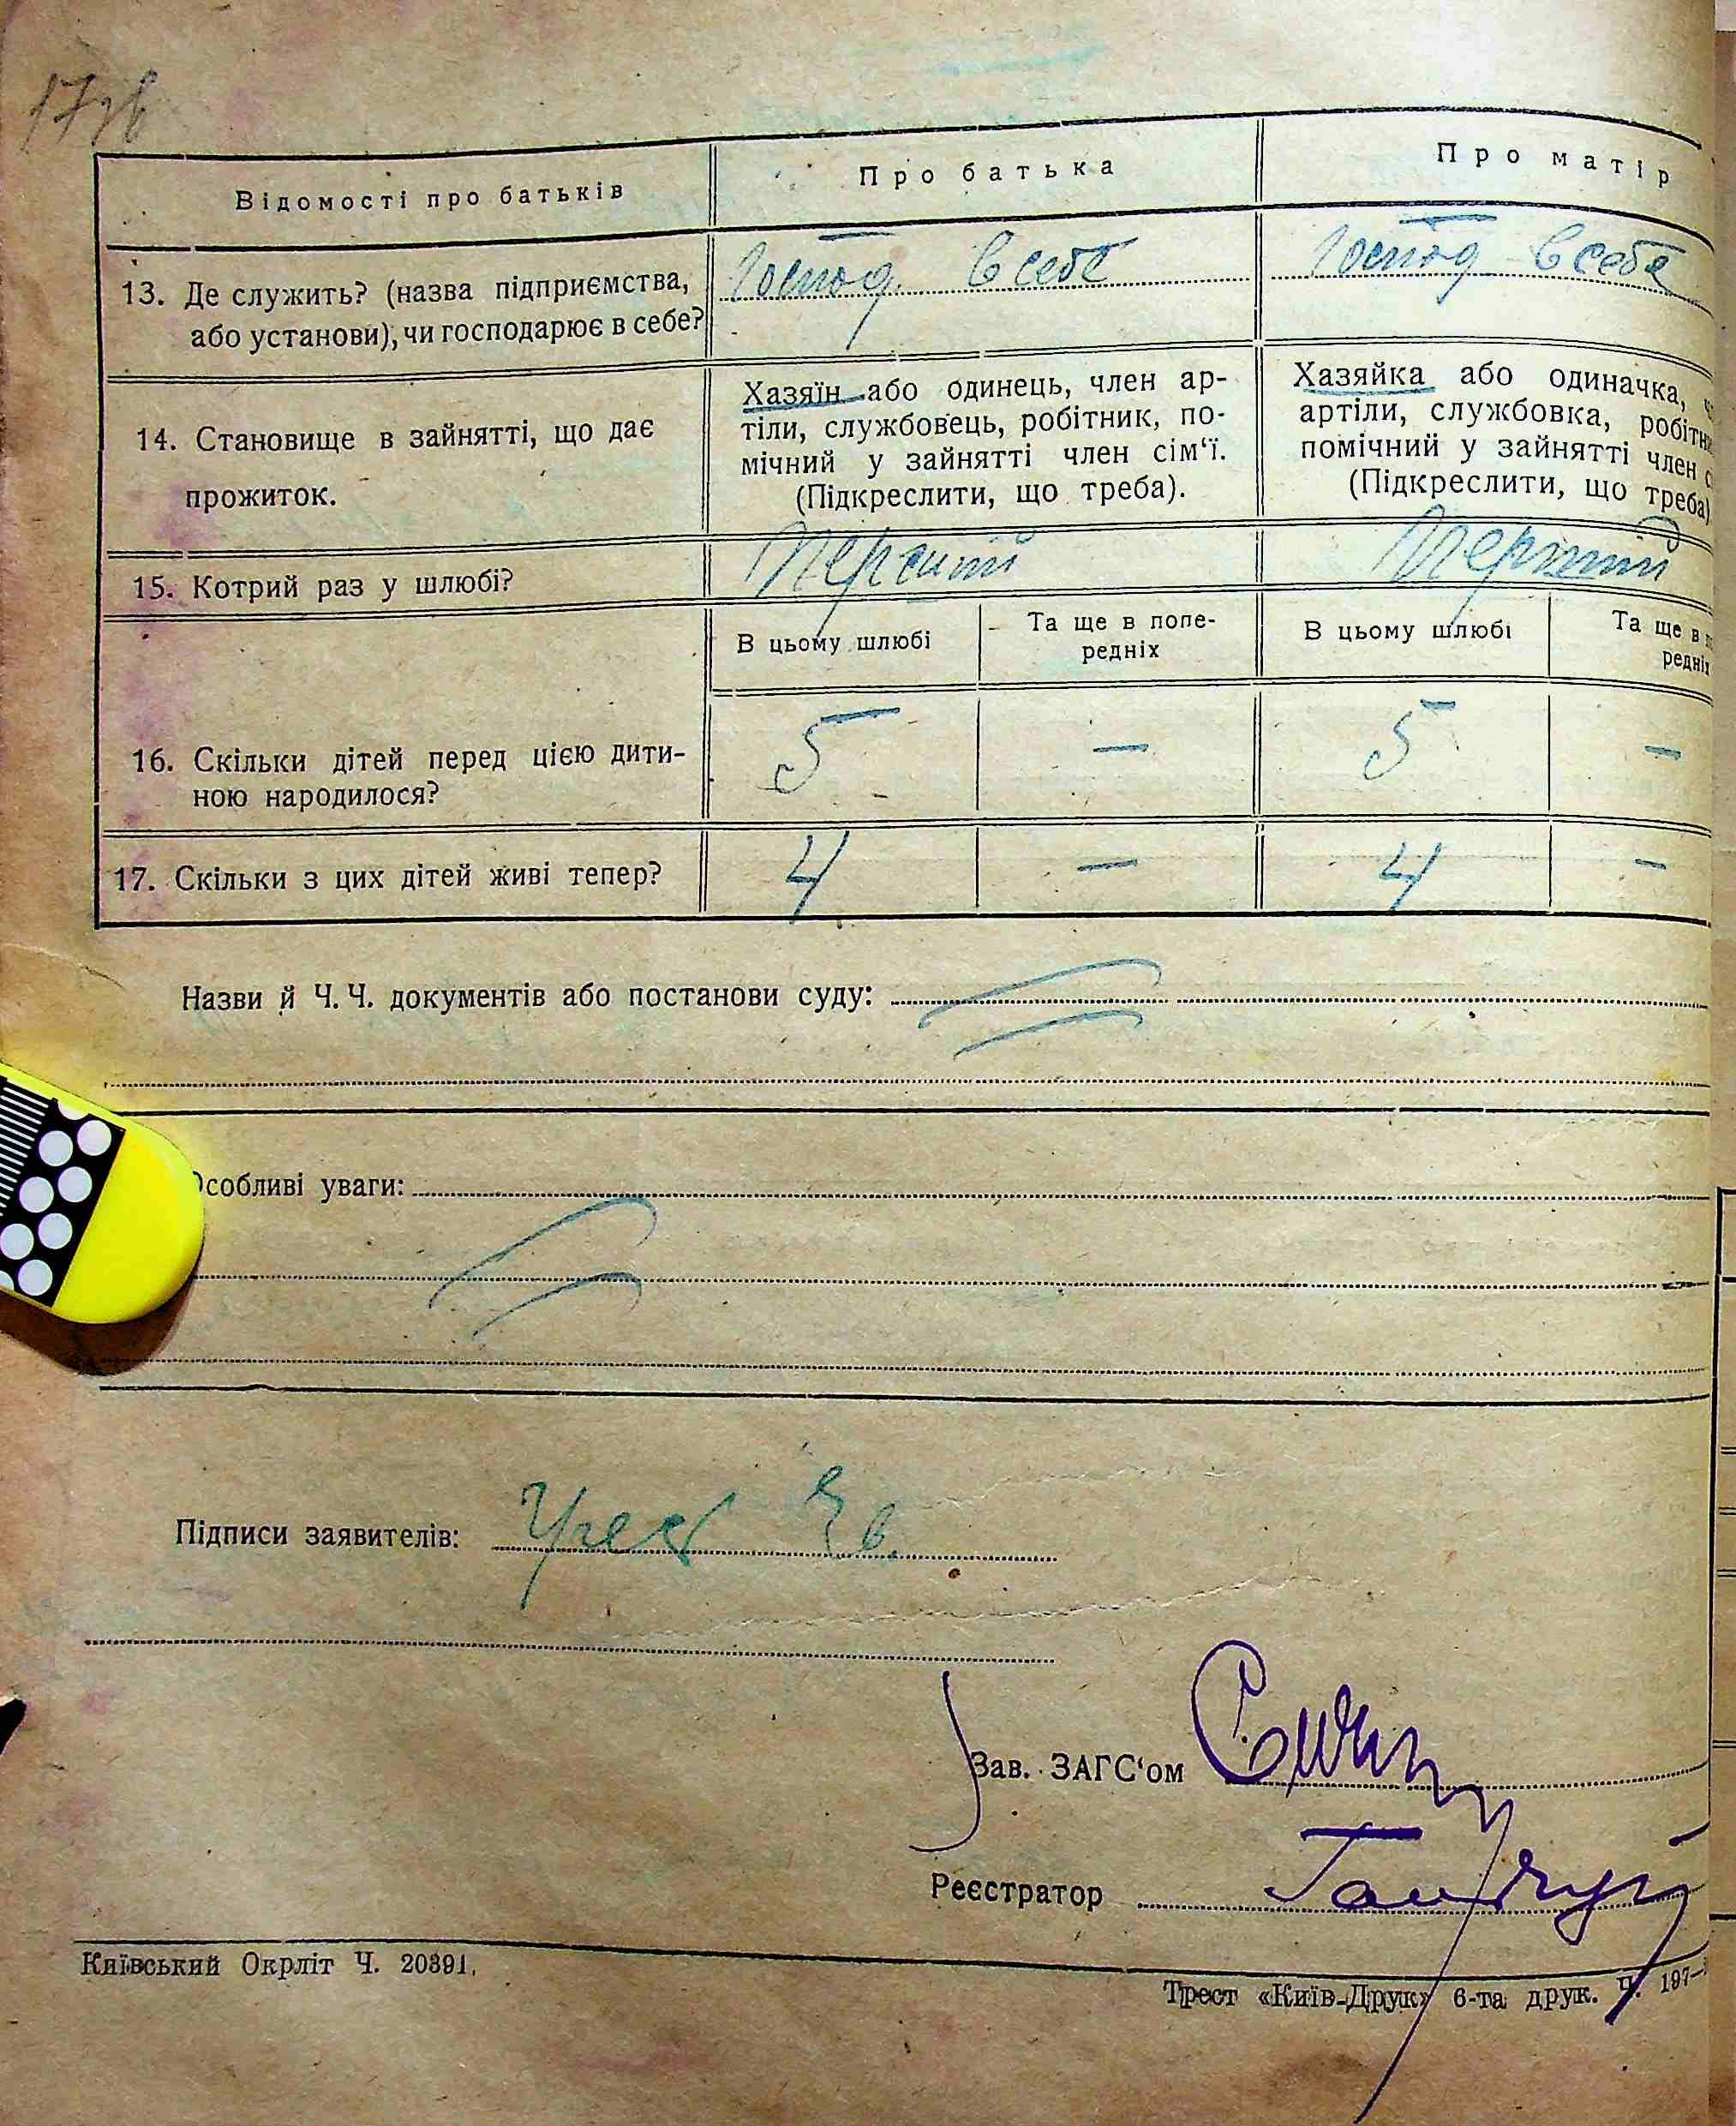 17зв
Відомості про батьків
Про батька
Про матір
13. Де служить? (назва підприємства,
або установи), чи господарює в себе?
Господ. в себе
Господ в себе
14. Становище в зайнятті, що дає
прожиток.
Хазяїн або одинець, член ар-
тіли, службовець, робітник, по-
мічний у зайнятті член сім‘ї.
(Підкреслити, що треба).
Хазяйка або одиначка,
артіли, службовка, робітн
помічний у зайнятті член с
(Підкреслити, що треба)
15. Котрий раз у шлюбі?
Перший
Перший
В цьому шлюбі
Та ще в попе-
редніх
В цьому шлюбі
Та ще в п
редніх
16. Скільки дітей перед цією дити-
ною народилося?
5 — 5 —
17. Скільки з цих дітей живі тепер?
4 — 4 —
Назви й Ч. Ч. документів або постанови суду:
Особливі уваги:
Підписи заявителів:
Зав. ЗАГС‘ом
Реєстратор
Київський Окрліт Ч. 20391.
Трест «Київ-Друк» 6-та друк. Ч. 197—